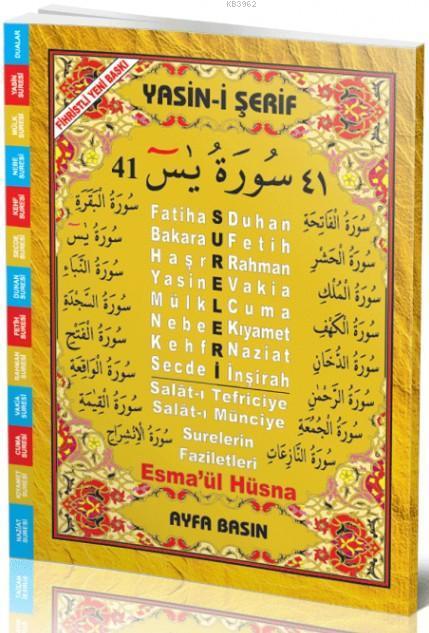 KB3962
FİHRİSTLİ YENİ BASKI
YASİN-İ ŞERİF
41 سُورَةُ يٰسٓ ٤١
Fatiha
Bakara
Haşr
Yasin
Mülk
Nebe
Kehf
Secde
SURELERİ
Duhan
Fetih
Rahman
Vakia
Cuma
Kıyamet
Naziat
İnşirah
سُورَةُ الْبَقَرَةِ
سُورَةُ يٰسٓ
سُورَةُ النَّبَاءِ
سُورَةُ السَّجْدَةِ
سُورَةُ الْفَتْحِ
سُورَةُ الْوَاقِعَةِ
سُورَةُ الْقِيٰمَةِ
سُورَةُ الْاِنْشِرَاحِ
سُورَةُ الْفَاتِحَةِ
سُورَةُ الْحَشْرِ
سُورَةُ الْمُلْكِ
سُورَةُ الْكَهْفِ
سُورَةُ الدُّخَانِ
سُورَةُ الرَّحْمٰنِ
سُورَةُ الْجُمُعَةِ
سُورَةُ النَّازِعَاتِ
Salât-ı Tefriciye
Salât-ı Münciye
Surelerin
Faziletleri
Esma'ül Hüsna
AYFA BASIN
DUALAR
YASİN SURESİ
MÜLK SURESİ
NEBE SURESİ
KEHF SURESİ
SECDE SURESİ
DUHAN SURESİ
FETİH SURESİ
RAHMAN SURESİ
VAKIA SURESİ
CUMA SURESİ
KIYAMET SURESİ
NAZİAT SURESİ